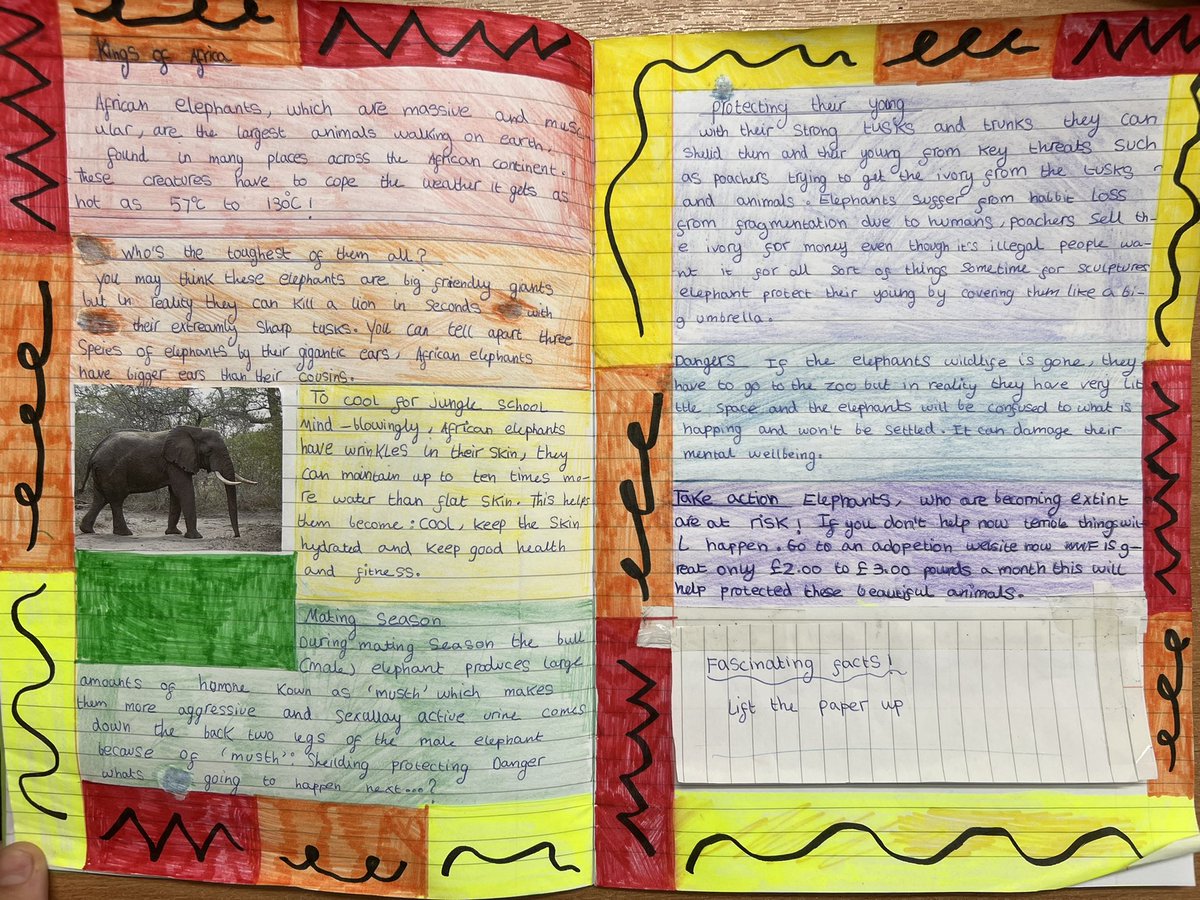 Kings of Africa
African elephants, which are massive and musc
ular, are the largest animals walking on earth.
found in many places across the African continent.
these creatures have to cope the weather it gets as
hot as 57°c to 130°C!
Who's the toughest of them all?
you may think these elephants are big friendly giants
but in reality they can kill a lion in seconds with
their extreamly sharp tusks. You can tell apart three
Speies of elephants by their gigantic ears, African elephants
have bigger ears than their cousins.
To cool for jungle school
Mind-blowingly, African elephants
have wrinkles in their skin, they
can maintain up to ten times mo-
re water than flat skin. This helps
them become: cool, keep the skin
hydrated and keep good health
and fitness.
Mating season
During mating season the bull
(male) elephant produces large
amounts of homone kown as 'musth' which makes
them more aggressive and sexallay active urine comes
down the back two legs of the male elephant
because of 'musth'. Sheilding protecting Danger
whats going to happen next...?
protecting their young
with their strong tusks and trunks they can
sheild them and their young from key threats such
as poachers trying to get the ivory from the tusks
and animals. Elephants suffer from habbit loss
from fragmentation due to humans, poachers sell th-
e ivory for money even though it's illegal people wa-
nt it for all sort of things sometime for sculptures
elephant protect their young by covering them like a bi-
g umbrella.
Dangers If the elephants wildlife is gone, they
have to go to the zoo but in reality they have very lit
tle space and the elephants will be confused to what is
happing and won't be settled. It can damage their
mental wellbeing.
Take action Elephants, who are becoming extint
are at risk! If you don't help now terrible things wil
l happen. Go to an adopetion website now WWF is g-
reat only £2.00 to £3.00 pounds a month this will
help protected these beautiful animals.
Fascinating facts!
Lift the paper up